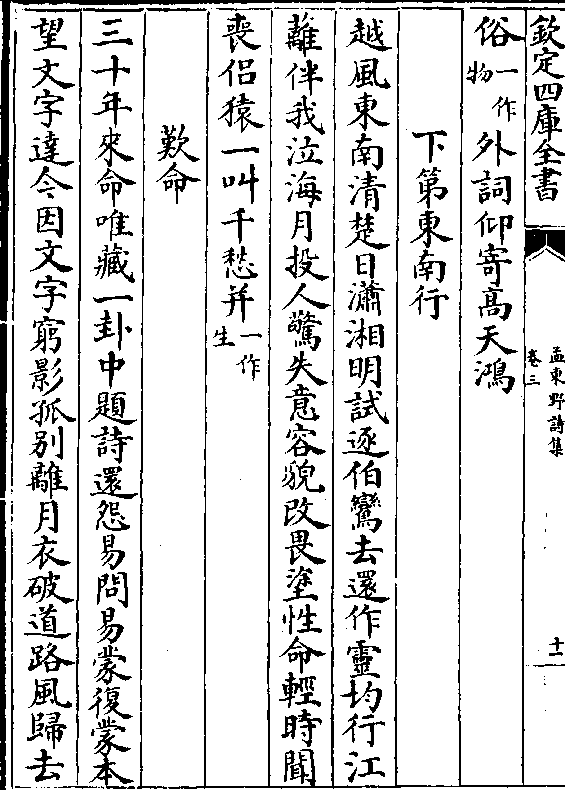 欽定四庫全書
孟東野詩集
卷三
十二
俗一作物外詞仰寄高天鴻
下第東南行
越風東南清楚日瀟湘明試逐伯鸞去還作靈均行江
蘺伴我泣海月投人驚失意容貌改畏塗性命輕時聞
喪侶猿一叫千愁并一作生
歎命
三十年來命唯藏一卦中題詩還怨易問易蒙復蒙本
望文字達今因文字窮影孤別離月衣破道路風歸去